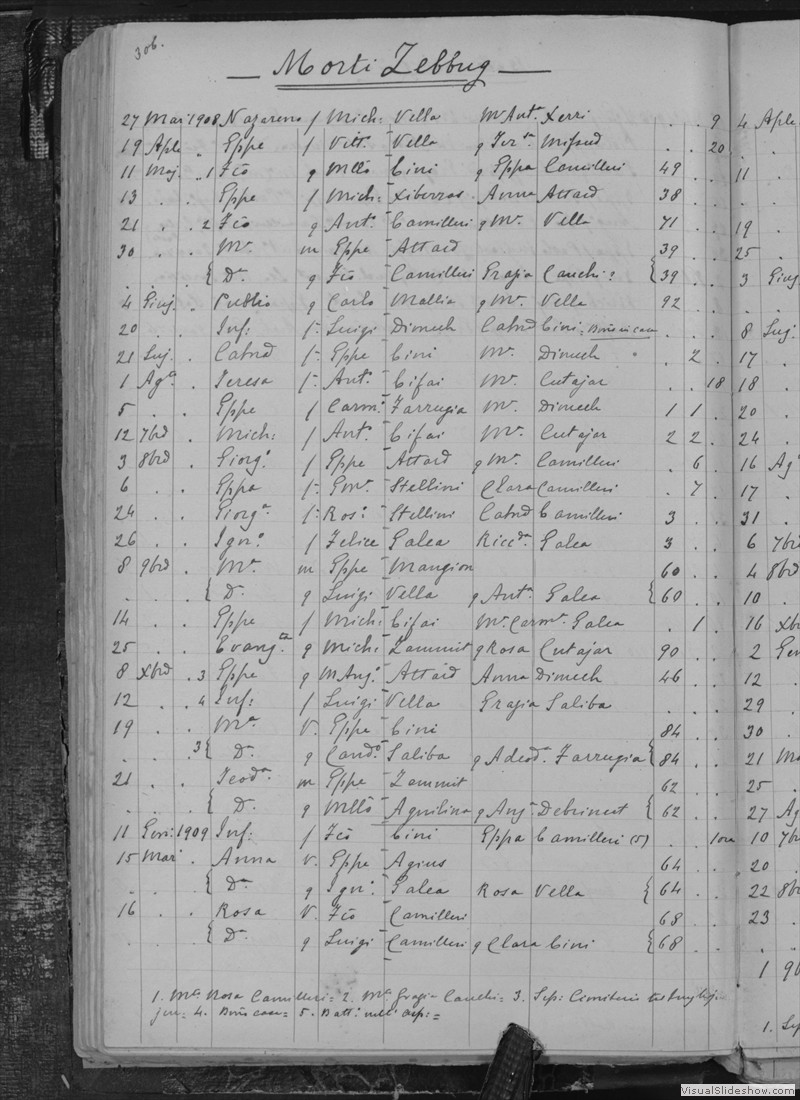 306.
— Morti Zebbug —
27 Mar 1908 Nazareno f Mich: Vella Mª Antª Xerri . . 9 4 Aple
19 Aple . Gppe f Vitt. Vella q Terªª Mifsud . . 20 . .
11 Maj . 1 Fco q Mllo Cini q Gppa Camilleri 49 . . 11
13 . . Gppe f Mich: Xiberras Anna Attard 38 . . .
21 . . 2 Fco q Antº Camilleri q Mª Vella 71 . . 19
30 . . Mª m Gppe Attard 39 . . 25
. . . { Dª q Fco Camilleri Grazia Cauchi: { 39 . . 3 Giug
4 Giug . Publio q Carlo Mallia q Mª Vella 92 . . .
20 . . Inf: f: Luigi Dimech Catnd Cini: Bñus in casa 8 Lug.
21 Lug . Catnd f: Gppe Cini Mª Dimech . 2 . 17 .
1 Agº . Teresa f: Antº Cifai Mª Cutajar . . 18 18
5 . . Gppe f Carmº Farrugia Mª Dimech 1 1 . 20
12 7bre . Mich: f Antº Cifai Mª Cutajar 2 2 . 24
3 8bre . Giorgº f Gppe Attard q Mª Camilleri . 6 . 16 Agº
6 . . Gppa f: Emº Stellini Clara Camilleri . 7 . 17 .
24 . . Giorgª f: Rosº Stellini Catnd Camilleri 3 . . 31 .
26 . . Ignº f Felice Galea Riccdª Galea 3 . . 6 7bre
8 9bre . Mª m Gppe Mangion 60 . . 4 8bre
. . . { Dª q Luigi Vella q Antª Galea { 60 . . 10 .
14 . . Gppe f Mich: Cifai Mª Carmª Galea . 1 . 16 Xbre
25 . . Evangta q Mich: Zammit q Rosa Cutajar 90 . . 2 Gen
8 Xbre . 3 Gppe q M Angº Attard Anna Dimech 46 . . 12 .
12 . . 4 Inf: f Luigi Vella Grazia Saliba . . . 29 .
19 . . Mª V. Gppe Cini 84 . . 30 .
. . . 3 { Dª q Candº Saliba q Adeodª Farrugia { 84 . . 21 Ma
21 . . Teodª m Gppe Zammit 62 . . 25 .
. . . { Dª q Mllo Aquilina q Angª Debrincat { 62 . . 27 Ag
11 Genn: 1909 Inf: f Fco Cini Gppa Camilleri (5) . . 1 ora 10 7bre
15 Mar . Anna V. Gppe Agius 64 . . 20 .
. . . { Dª q Ignº Galea Rosa Vella { 64 . . 22 8bre
16 . . Rosa V. Fco Camilleri 68 . . 23 .
. . . { Dª q Luigi Camilleri q Clara Cini { 68 . . .
1 9b
1. Mª Rosa Camilleri = 2. Mª Grazia Cauchi = 3. Sep: Cimiterio
4. Bñus casa = 5. Batt: nell'
1. Sep
VisualSlideshow.com